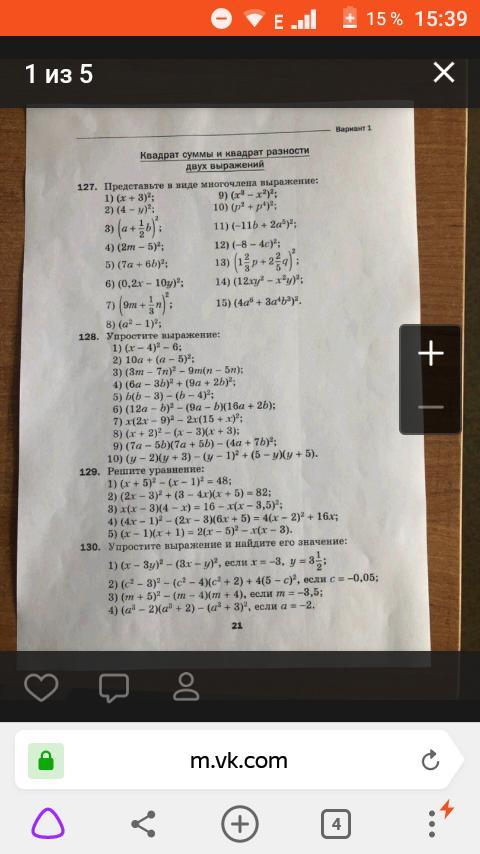 E 15 % 15:39
1 из 5
Вариант 1
Квадрат суммы и квадрат разности
двух выражений
127. Представьте в виде многочлена выражение:
1) (x + 3)²; 9) (x³ − x²)²;
2) (4 − y)²; 10) (p² + p⁴)²;
3) (a + 1/2 b)²; 11) (−11b + 2a⁵)²;
4) (2m − 5)²; 12) (−8 − 4c)²;
5) (7a + 6b)²; 13) (1 2/3 p + 2 2/5 q)²;
6) (0,2x − 10y)²; 14) (12xy² − x²y)²;
7) (9m + 1/3 n)²; 15) (4a⁶ + 3a⁴b³)².
8) (a² − 1)²;
128. Упростите выражение:
1) (x − 4)² − 6;
2) 10a + (a − 5)²;
3) (3m − 7n)² − 9m(n − 5n);
4) (6a − 3b)² + (9a + 2b)²;
5) b(b − 3) − (b − 4)²;
6) (12a − b)² − (9a − b)(16a + 2b);
7) x(2x − 9)² − 2x(15 + x)²;
8) (x + 2)² − (x − 3)(x + 3);
9) (7a − 5b)(7a + 5b) − (4a + 7b)²;
10) (y − 2)(y + 3) − (y − 1)² + (5 − y)(y + 5).
129. Решите уравнение:
1) (x + 5)² − (x − 1)² = 48;
2) (2x − 3)² + (3 − 4x)(x + 5) = 82;
3) x(x − 3)(4 − x) = 16 − x(x − 3,5)²;
4) (4x − 1)² − (2x − 3)(6x + 5) = 4(x − 2)² + 16x;
5) (x − 1)(x + 1) = 2(x − 5)² − x(x − 3).
130. Упростите выражение и найдите его значение:
1) (x − 3y)² − (3x − y)², если x = −3, y = 3 1/2;
2) (c² − 3)² − (c² − 4)(c² + 2) + 4(5 − c)², если c = −0,05;
3) (m + 5)² − (m − 4)(m + 4), если m = −3,5;
4) (a³ − 2)(a³ + 2) − (a³ + 3)², если a = −2.
21
m.vk.com
4